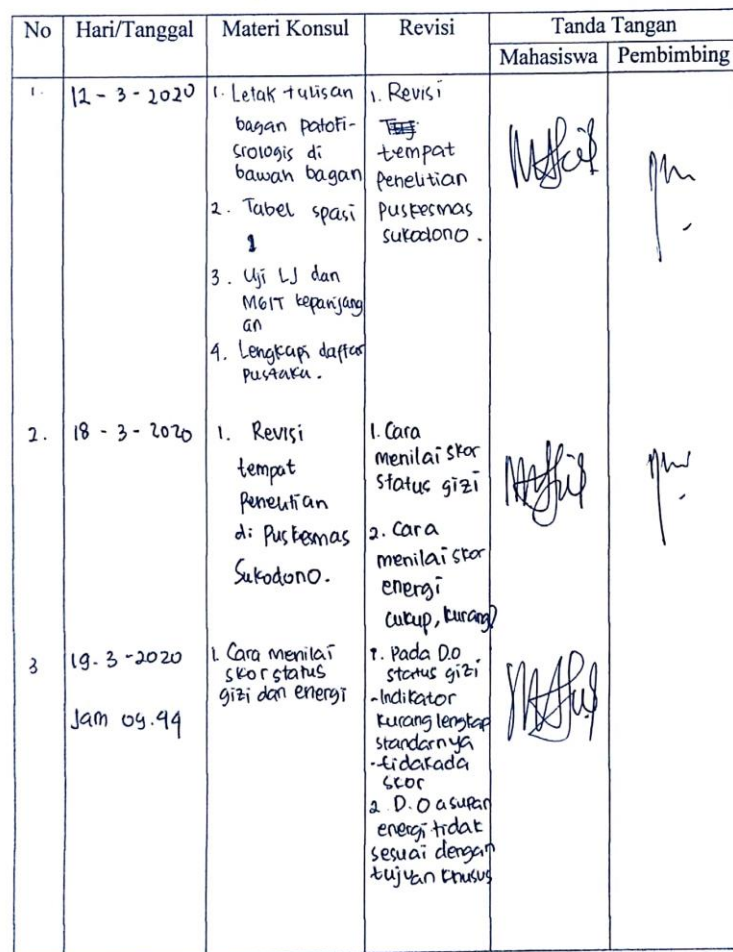 No Hari/Tanggal Materi Konsul Revisi Tanda Tangan
Mahasiswa Pembimbing
1. 12 - 3 - 2020
1. Letak tulisan
bagan patofi-
siologis di
bawah bagan
2. Tabel spasi
1
3. Uji LJ dan
MGIT kepanjang
an
4. Lengkapi daftar
pustaka.
1. Revisi
tempat
penelitian
puskesmas
sukodono.
2. 18 - 3 - 2020
1. Revisi
tempat
penelitian
di Puskesmas
Sukodono.
1. Cara
menilai skor
status gizi
2. Cara
menilai skor
energi
cukup, kurang?
3 19. 3 -2020
Jam 09.44
1. Cara menilai
skor status
gizi dan energi
1. Pada D.O
status gizi
-Indikator
kurang lengkap
standarnya
-tidak ada
skor
2. D.O asupan
energi tidak
sesuai dengan
tujuan khusus